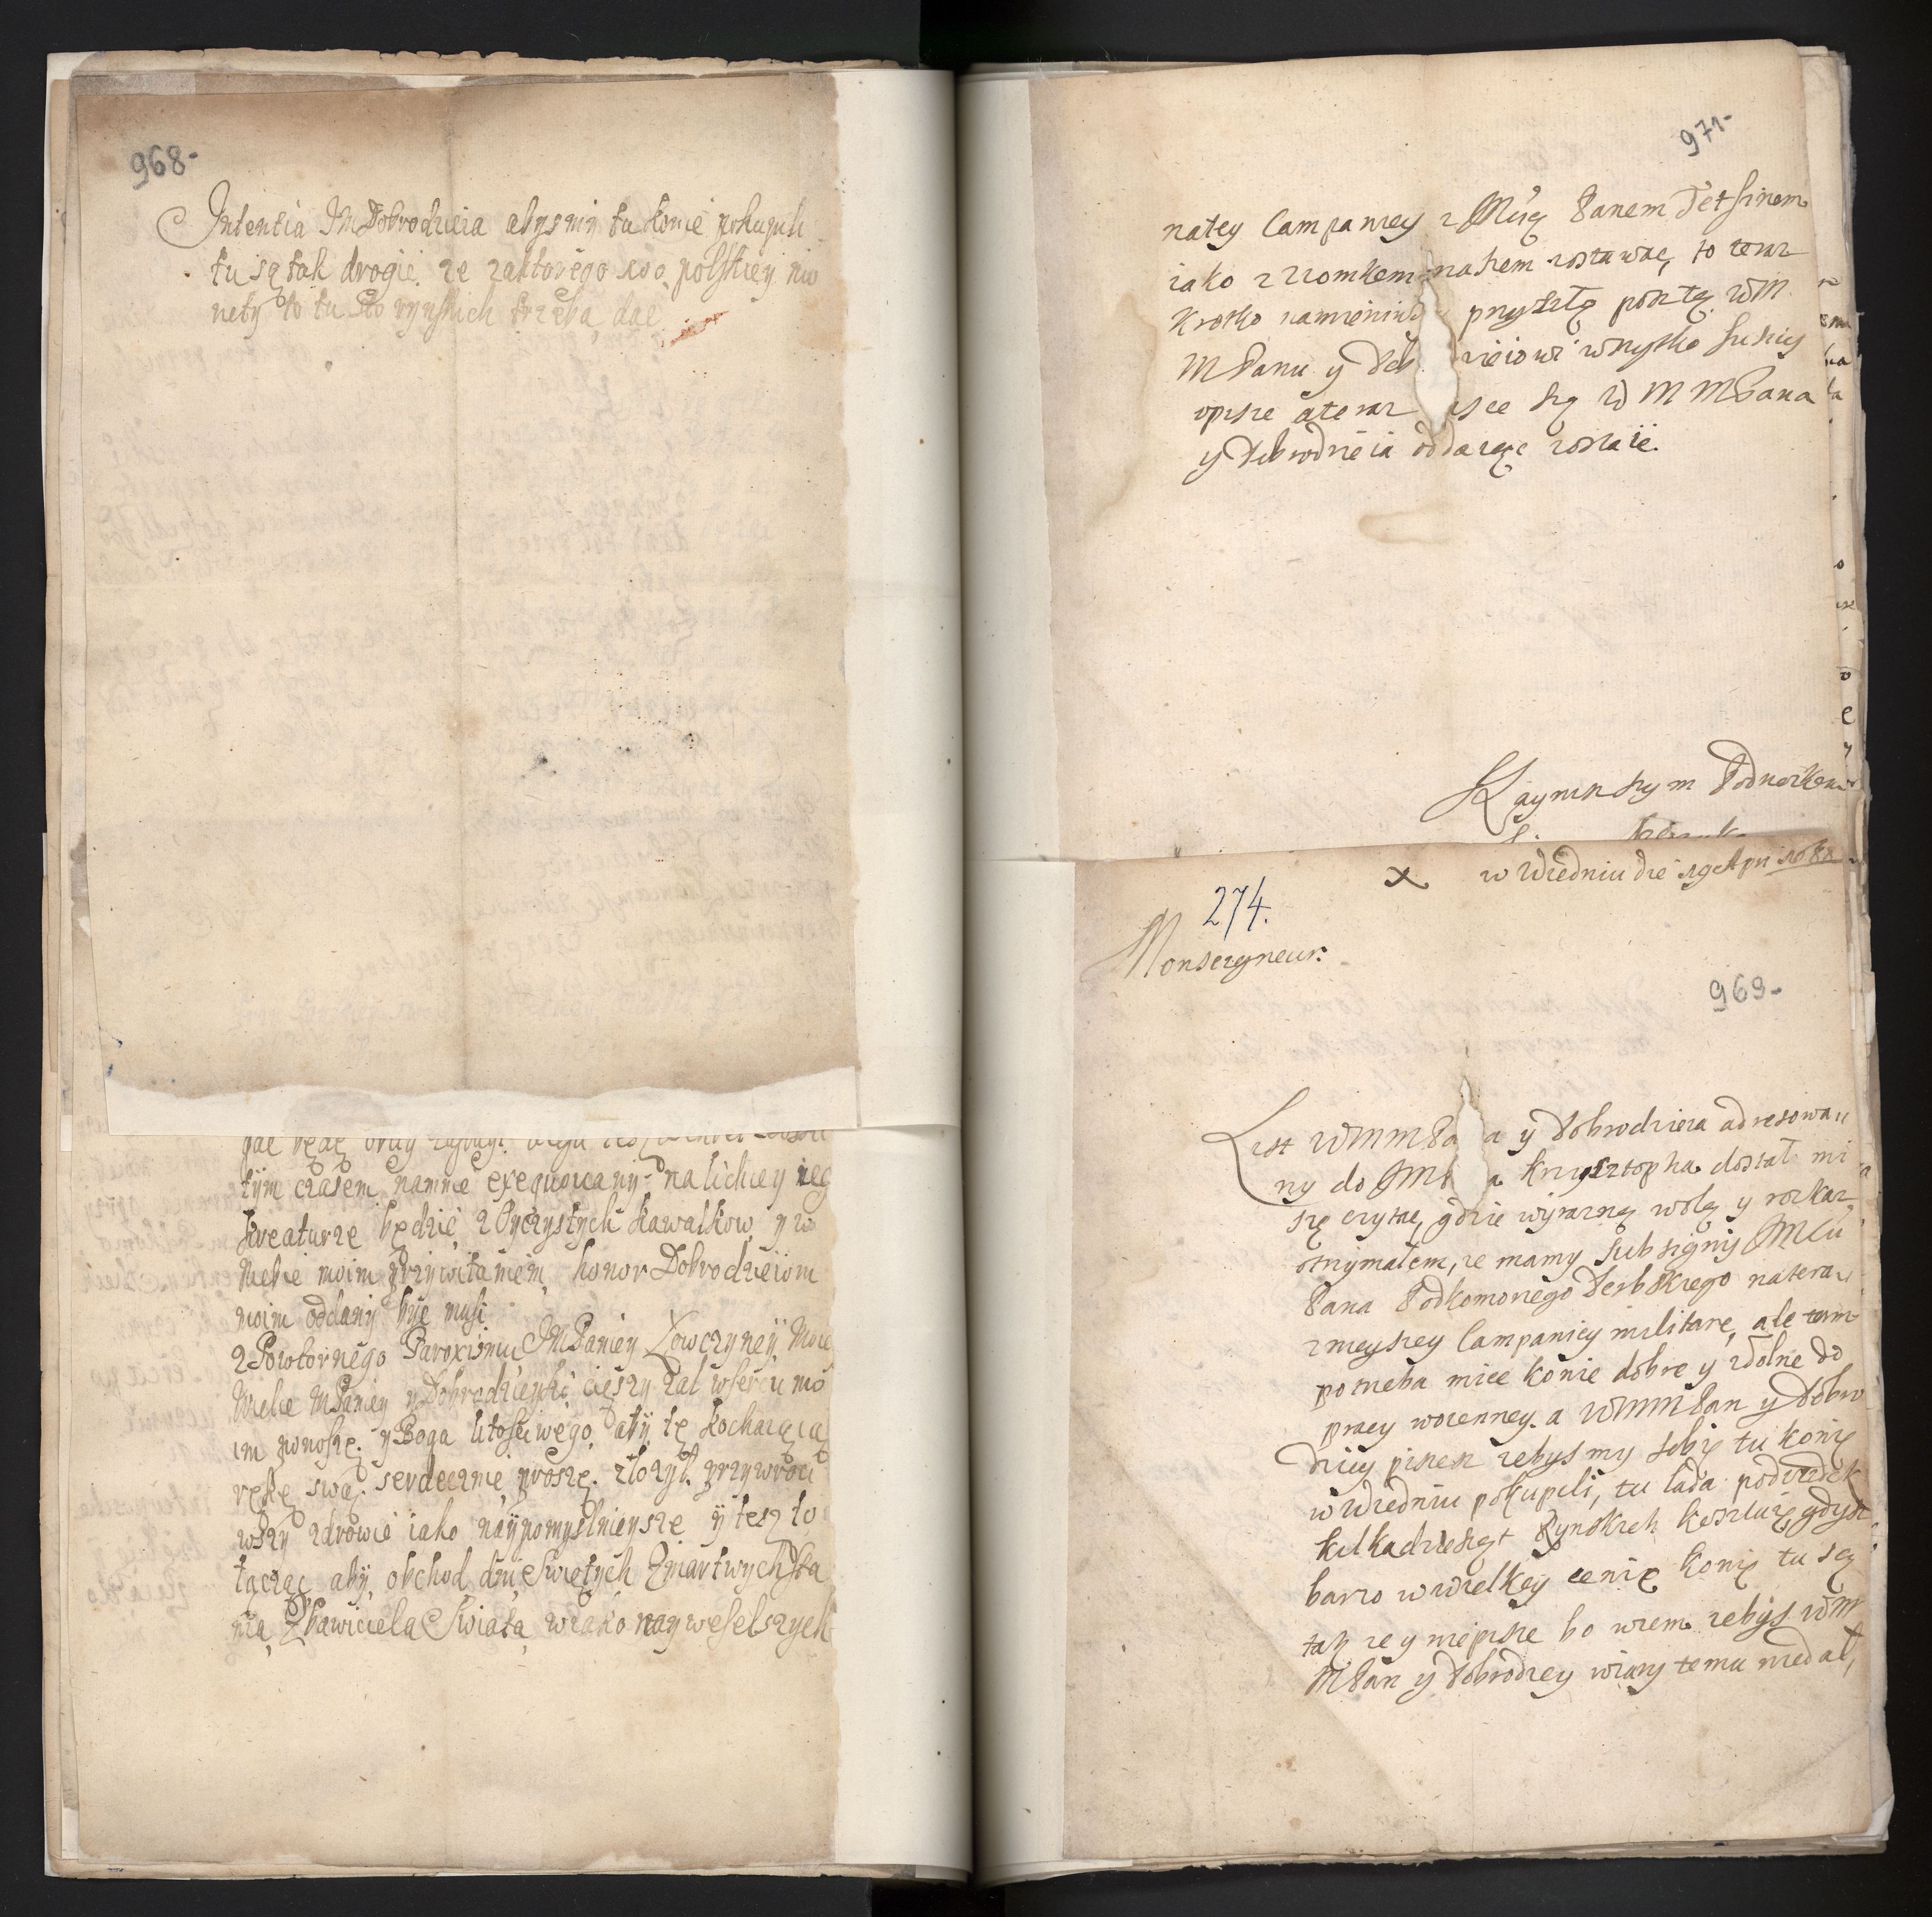 968-
Intentia JM Dobrodzieia abysmy tu konie pokupili
tu są tak drogie, ze zaktorego 100 polskiey mo
nety to tu sto rynskich trzeba dac
tym czasem, namnie exequowany na lichey
kreaturze będzie, z Oyczystych kawalkow, y w
Niebie moim przywitaniem, honor Dobrodzieiom
moim oddany byc musi
z Powtornego Paroxismu JMPaniey Łowczyney Moie
Wielce MPaniey y Dobrodzieyki cięszy zal wsercu mo
im ponoszę. y Boga litosciwego, aby tę kochaiącą
rękę swą. serdecznie proszę. złozył. przywroci
wszy zdrowie iako naypomyslnieysze y tesz to
tącząc aby obchod dni Swiętych Zmartwychsta
nia Zbawiciela Swiata, wiako nayweselszych
971-
natey Campaniey z JMcią Panem
iako z Ziomkem naszem zostawac, to teraz
krotko namieniwszy przyszłą posztą WM
MPanu y Dob zieiowi wszystko
opisze ateraz sce się WM MPana
y Dobrodzieia oddaiąc zostaie.
Podnozkem
x w Wiedniu die 19 Apri
274.
Monseigneur:
969-
List WMMPa a y Dobrodzieia adresowan
ny do JM a Krzysztopha dostał mi
się czytac, gdzie wyrazną wolą y rozkaz
otrzymałem, ze mamy sub signis JMCu
Pana Podkomorzego Derbskiego nateraz
znieyszey Campaniey militare, ale tam
potrzeba miec konie dobre y zdolne do
pracy woienney. a WMMPan y Dobro
dziey piszesz zebysmy sobie tu konie
w Wiedniu pokupili, tu lada podiezdek
kilkadziesiąt Rynskich kosztuie gdysz
barzo wwielkey cenie konie tu są
tak ze y niepisze bo wiem zebys WM
MPan y Dobrodziey wiary temu niedał,